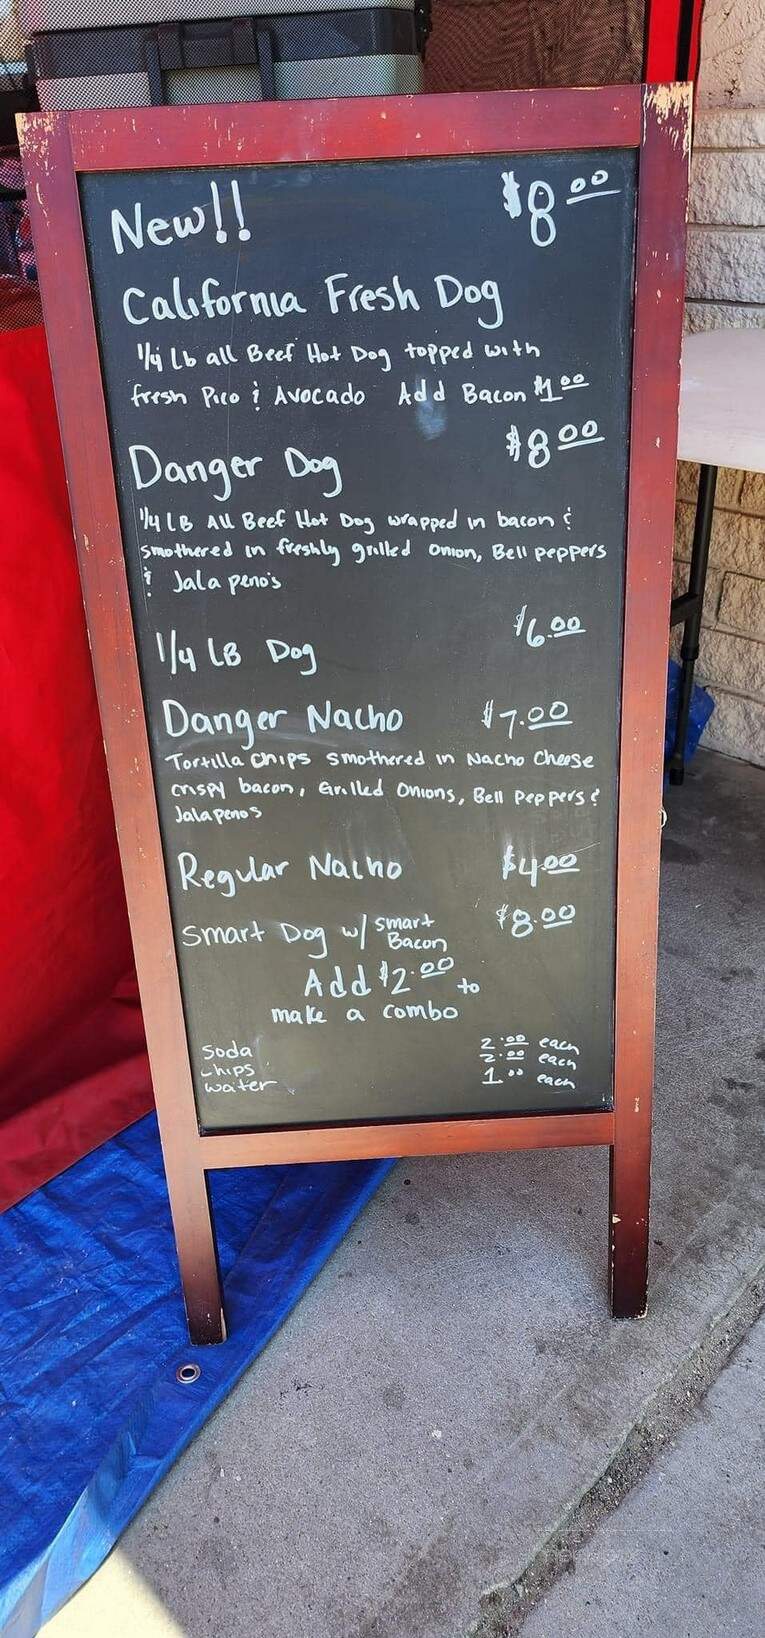 New!! $8.00
California Fresh Dog
1/4 Lb all Beef Hot Dog topped with
fresh Pico & Avocado Add Bacon $1.00
Danger Dog $8.00
1/4 LB All Beef Hot Dog wrapped in bacon &
smothered in freshly grilled onion, Bell peppers
& Jalapeno's
1/4 LB Dog $6.00
Danger Nacho $7.00
Tortilla chips smothered in Nacho Cheese
crispy bacon, Grilled Onions, Bell Peppers &
Jalapenos
Regular Nacho $4.00
Smart Dog w/ Smart Bacon $8.00
Add $2.00 to
make a combo
Soda 2.00 each
chips 2.00 each
water 1.00 each